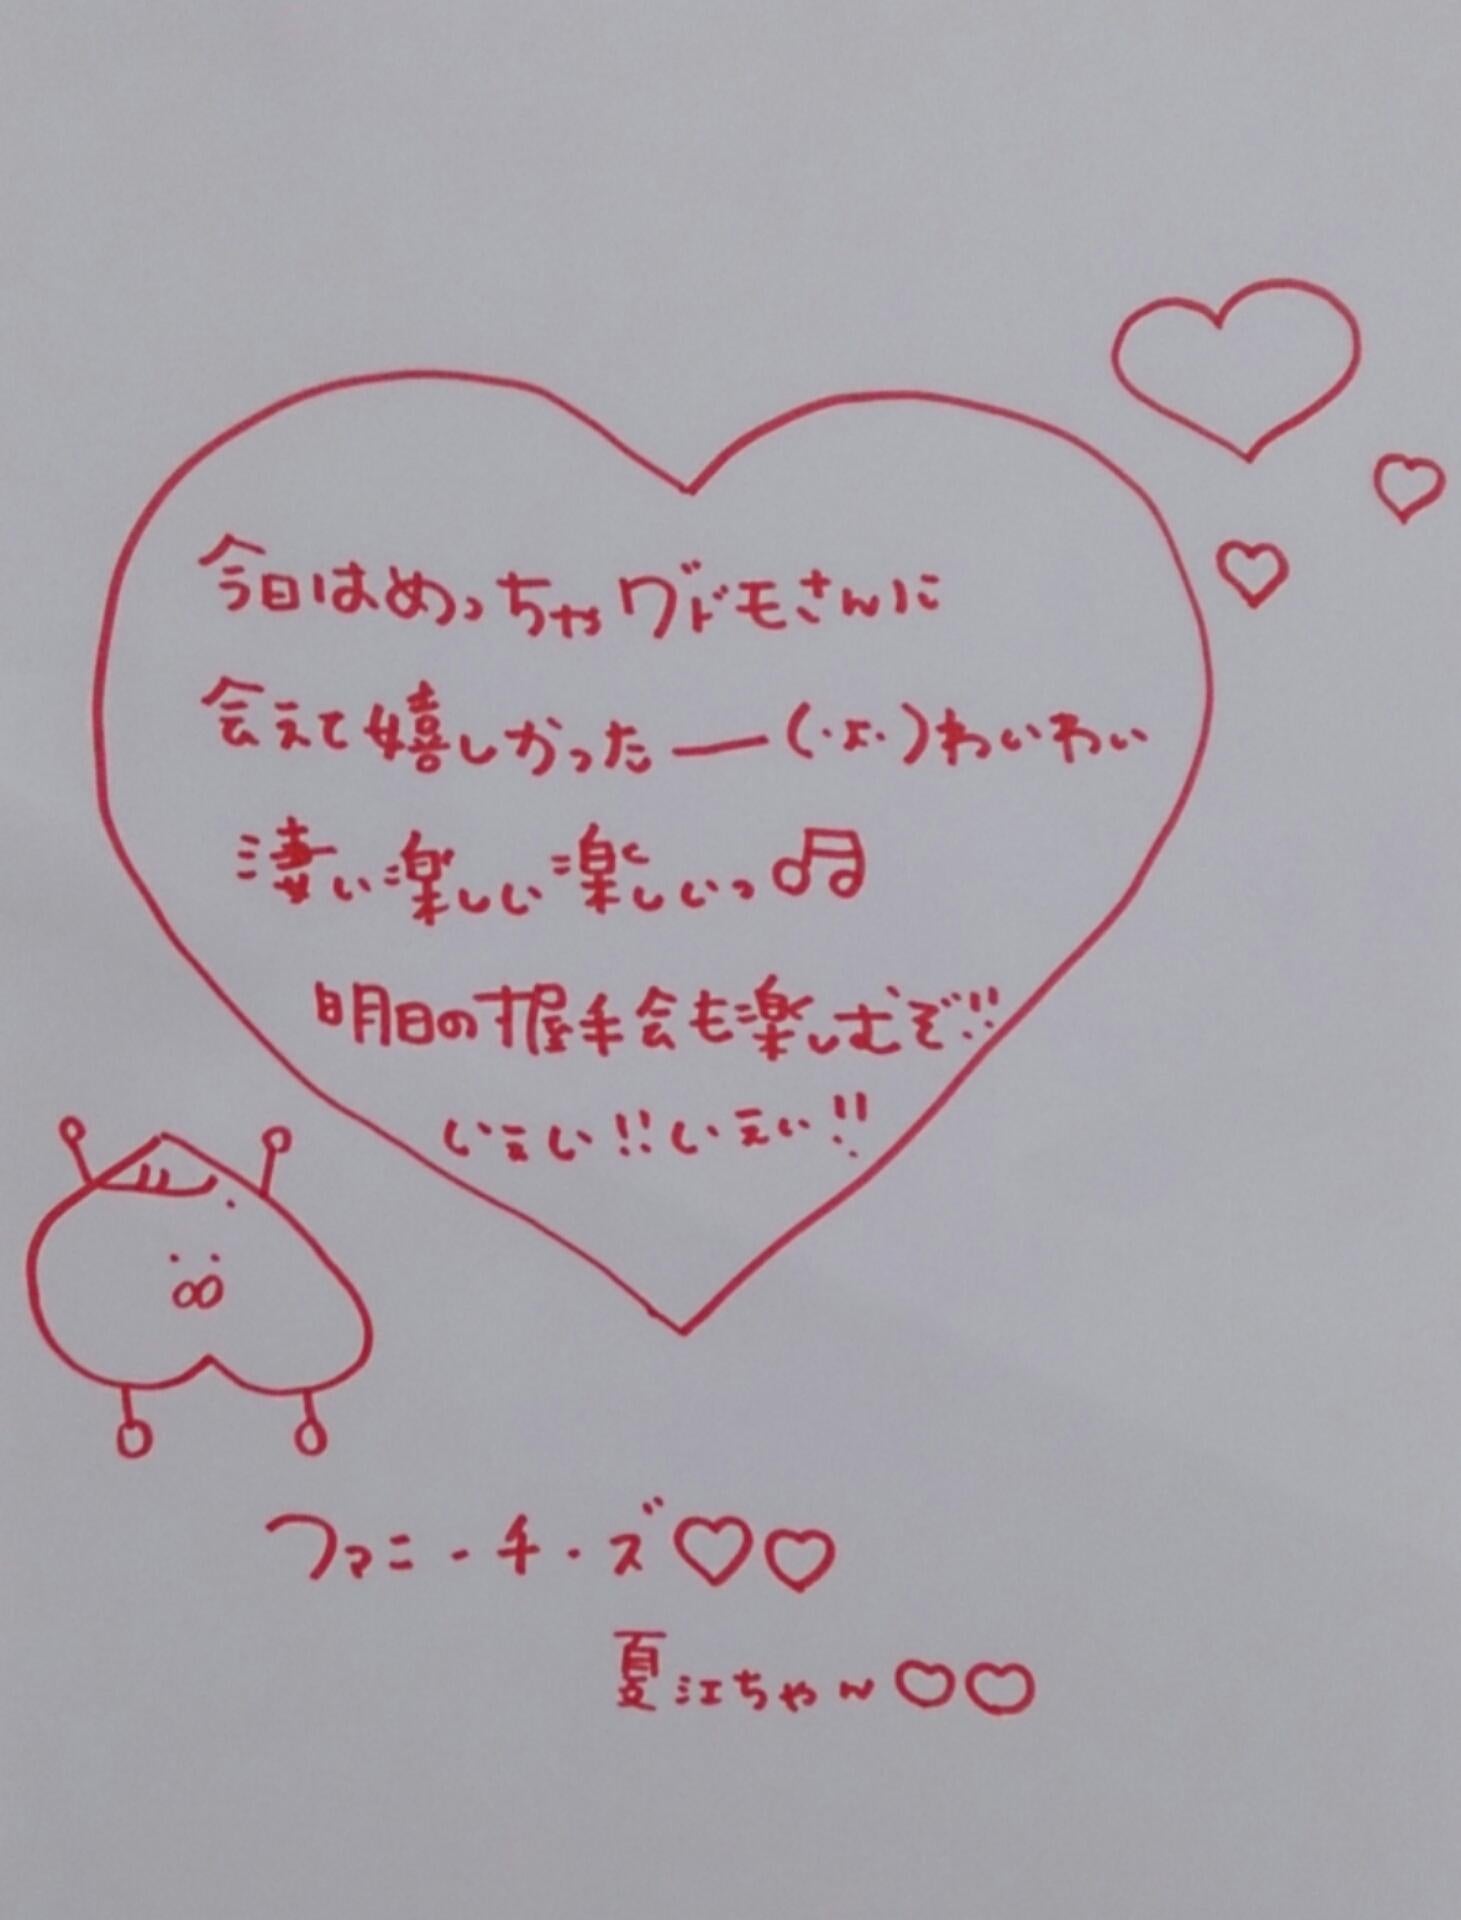 今日はめっちゃヲドモさんに
会えて嬉しかたったー(・x・)わいわい
凄い楽しい楽しいっ♫
明日の握手会も楽しむぞ!!
いぇい!!いぇい!!
ファニーチーズ♡♡
夏江ちゃん♡♡